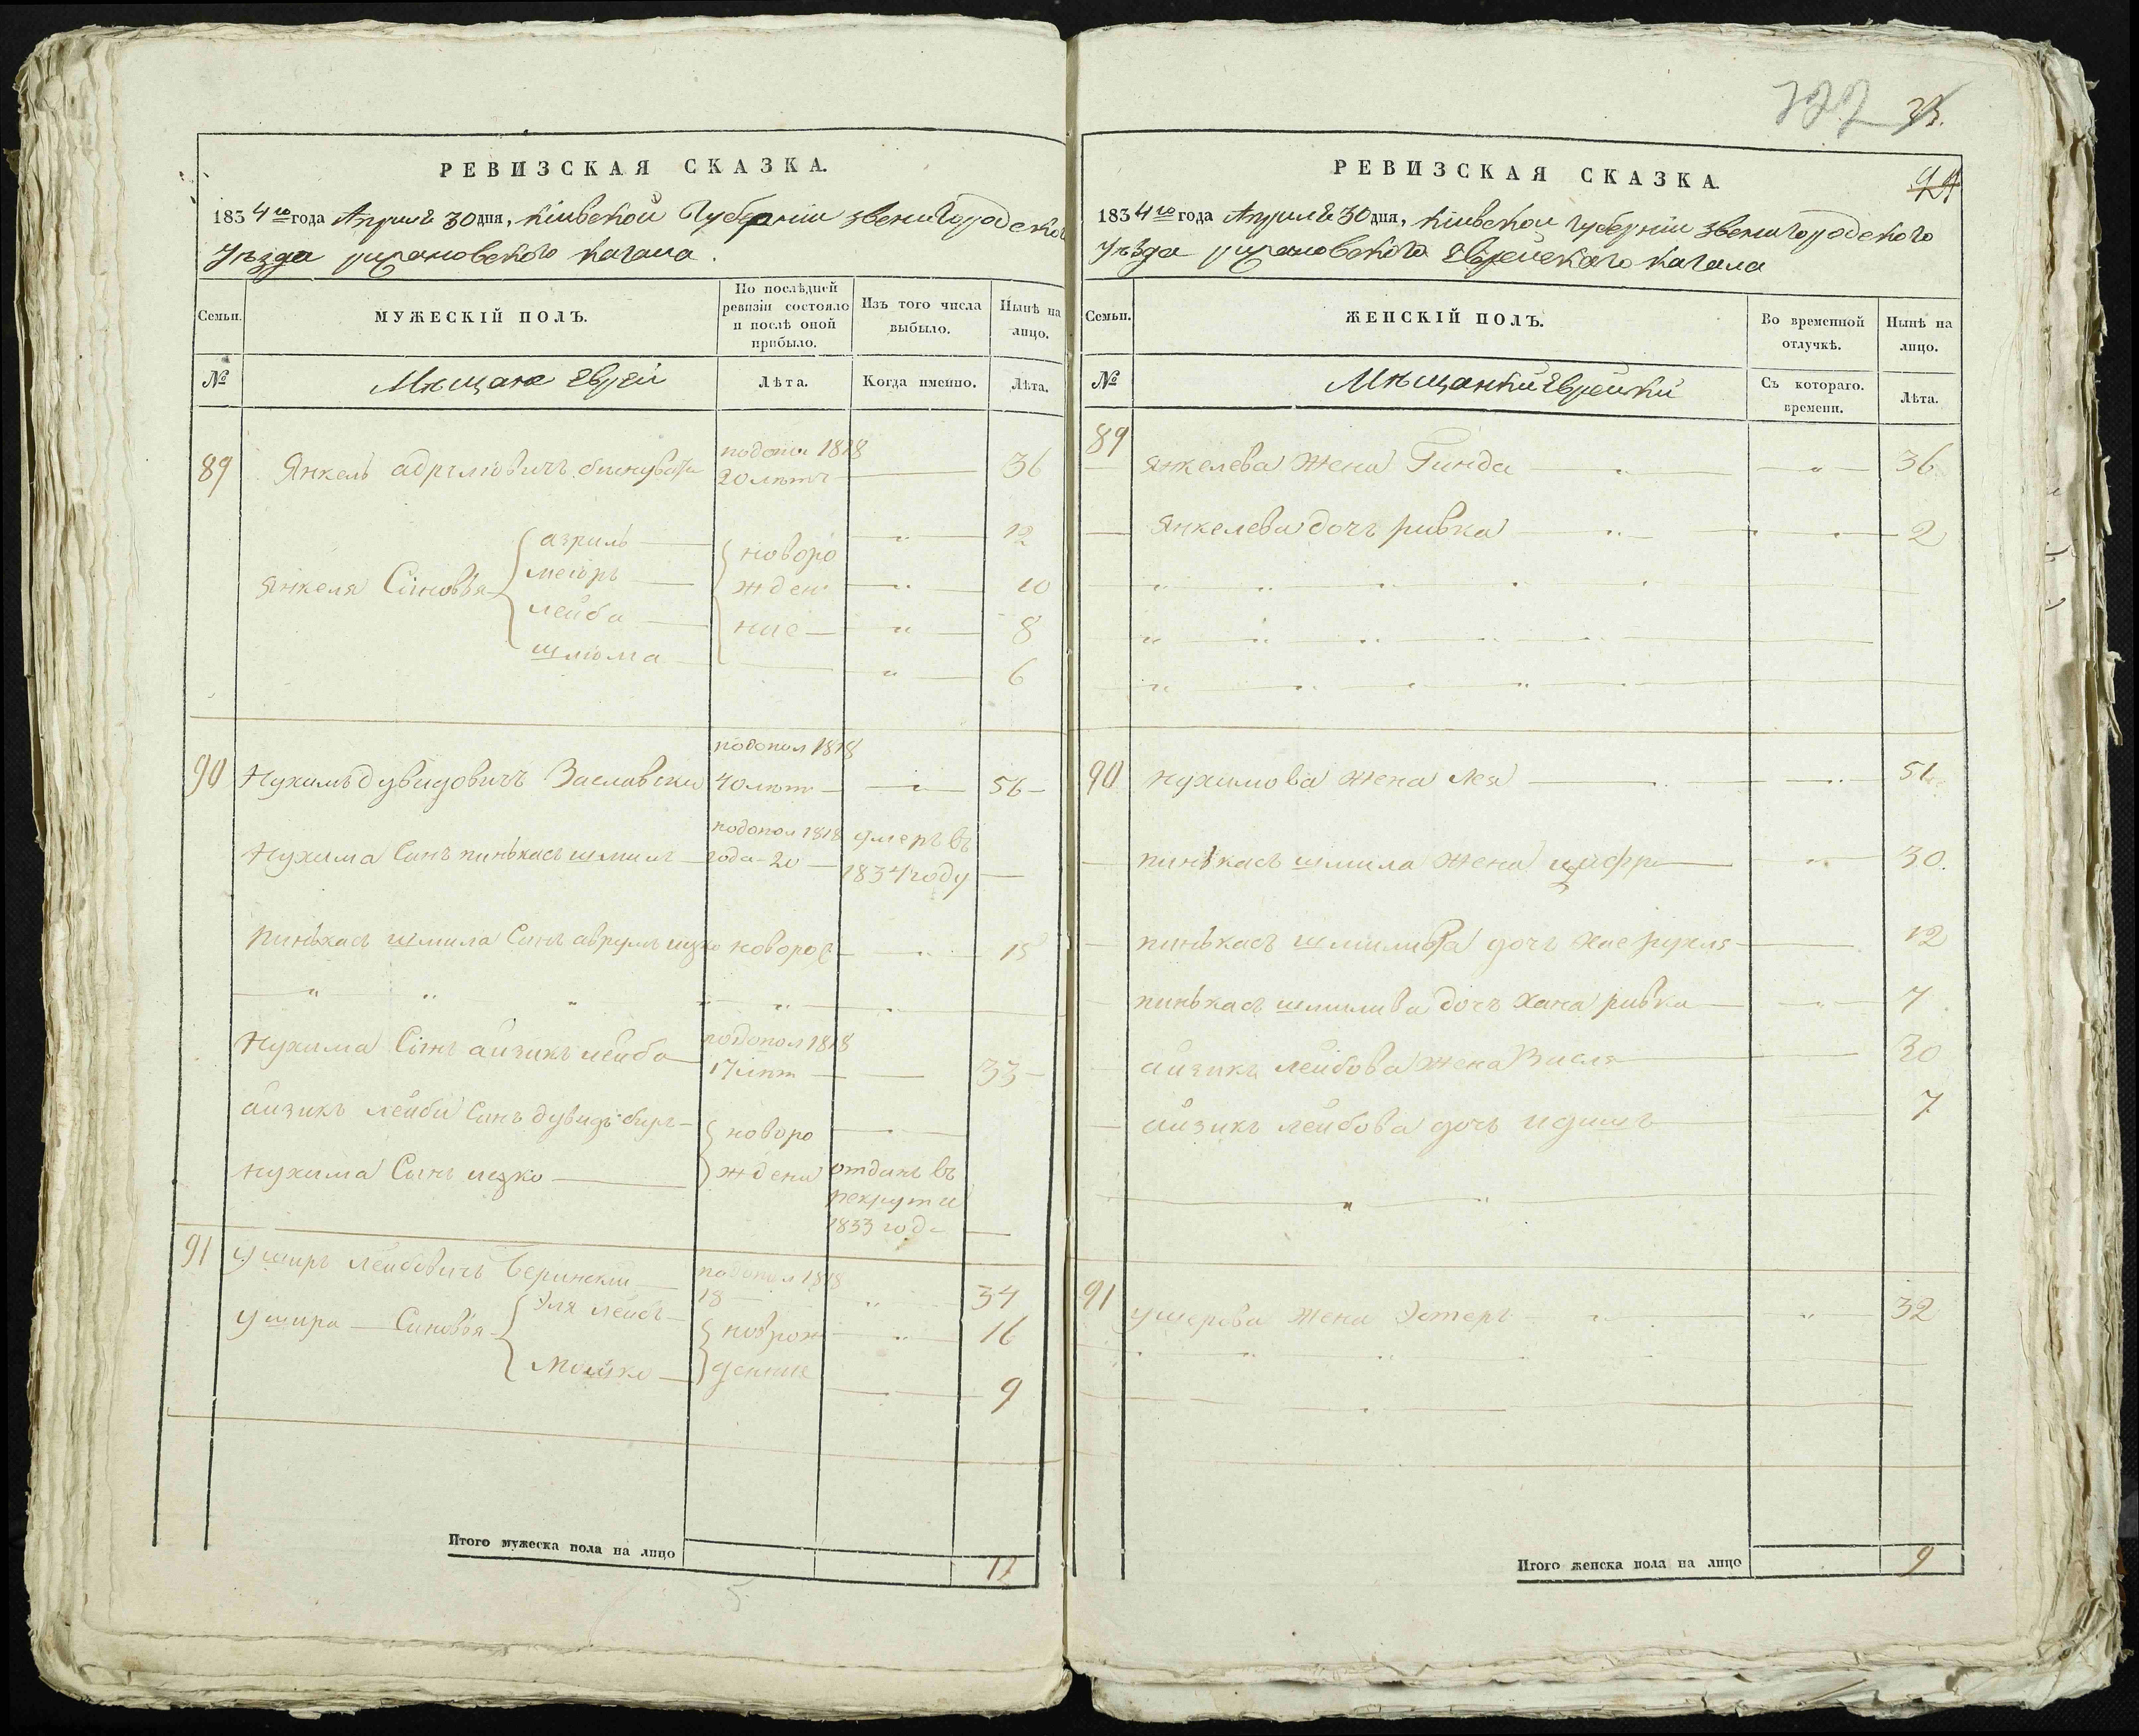 РЕВИЗСКАЯ СКАЗКА.
1834го года Апреля 30 дня, Кіивской Губерніи звенигородского
Уѣзда рижановского кагала.
Семьи.
МУЖЕСКІЙ ПОЛЪ.
По послѣдней ревизіи состояло и послѣ оной прибыло.
Изъ того числа выбыло.
Нынѣ на лицо.
№
Мѣщане Евреи
Лѣта.
Когда именно.
Лѣта.
89 Янкель 1818
20 лѣтъ 36
Янкеля Синовья
азриль 12
меiоръ 10
лейба 8
шлюма 6
новоро
жден
ние
1818
90 Нухимъ дувидовичъ Заславски 40 лѣт 56
1818 умеръ въ
Нухима Синъ пинькасъ шмиль года 20 1834 году
Пинькасъ шмила Синъ аврумъ ицко новорож 15
1818
Нухима Синъ айзикъ лейба 17 лѣт 33
айзикъ лейби Синъ дувидъ новоро
нухима Синъ ицко ждени отданъ въ
рекрути
1833 года
91 Уширъ Лейбовичъ Беринскии 1818
18 34
Ушира Синовья
Эля лейбъ 16
Мошко 9
новрож
дение
Итого мужеска пола на лицо 11
5
722 23.
94
РЕВИЗСКАЯ СКАЗКА.
1834го года Апреля 30 дня, Кіивской губерніи звенигородского
Уѣзда рижановского Еврейскаго кагала
Семьи.
ЖЕНСКІЙ ПОЛЪ.
Во временной отлучкѣ.
Нынѣ на лицо.
№
Мѣщанки Еврейки
Съ котораго. времени.
Лѣта.
89 Янкелева Жена Гинда 36
Янкелева дочь ривка 2
90 нухимова Жена Лея 51
пинькасъ шмила Жена цифра 30.
пинькасъ шмилива дочь Хае рухля 12
пинькасъ шмилива дочь Хана ривка 7
айзикъ лейбова Жена Висля 30
айзикъ лейбова дочь идишъ 7
91 ушерова Жена Эстеръ 32
Итого женска пола на лицо 9